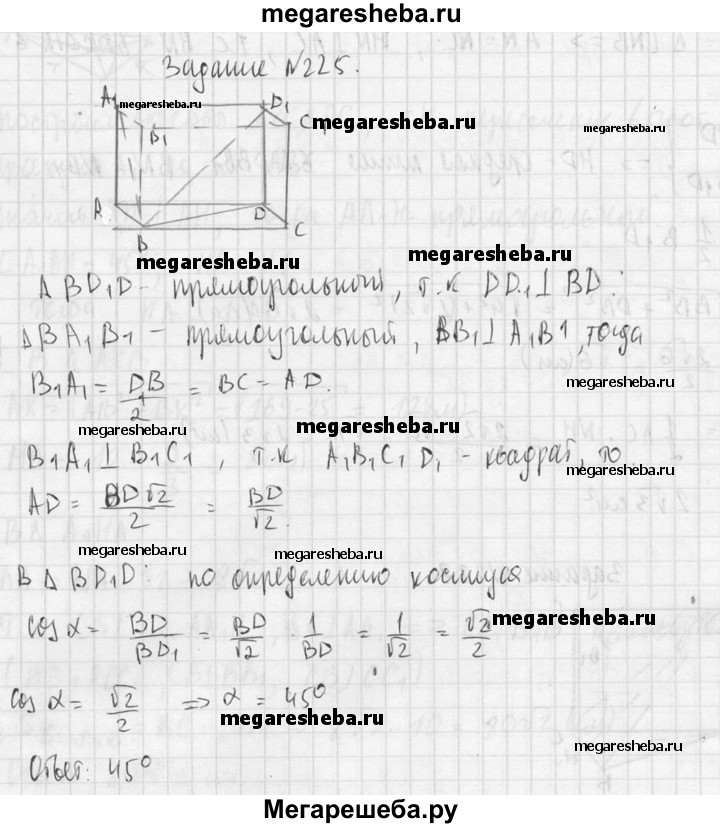 megaresheba.ru
Задание №225.
A1 megaresheba.ru D1
B1 C megaresheba.ru
A D
B C
megaresheba.ru megaresheba.ru
Δ BD1D - прямоугольный, т.к DD1⊥BD
ΔBA1B1 - прямоугольный, BB1⊥A1B1, тогда
B1A1 = DB/2 = BC = AD.
megaresheba.ru
megaresheba.ru megaresheba.ru
B1A1⊥B1C1, т.к A1B1C1D1 - квадрат, то
AD = BD√2/2 = BD/√2.
megaresheba.ru
megaresheba.ru megaresheba.ru
В Δ BD1D: по определению косинуса
cos α = BD/BD1 = BD/√2 · 1/BD = 1/√2 = √2/2 megaresheba.ru
cos α = √2/2 => α = 45°
megaresheba.ru
megaresheba.ru
Ответ: 45°
Мегарешеба.ру